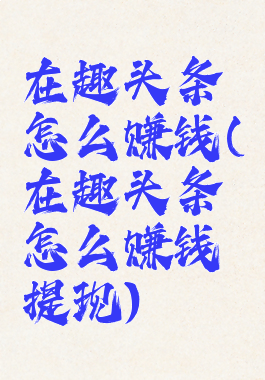 在趣头条
怎么赚钱(
在趣头条
怎么赚钱
提现)